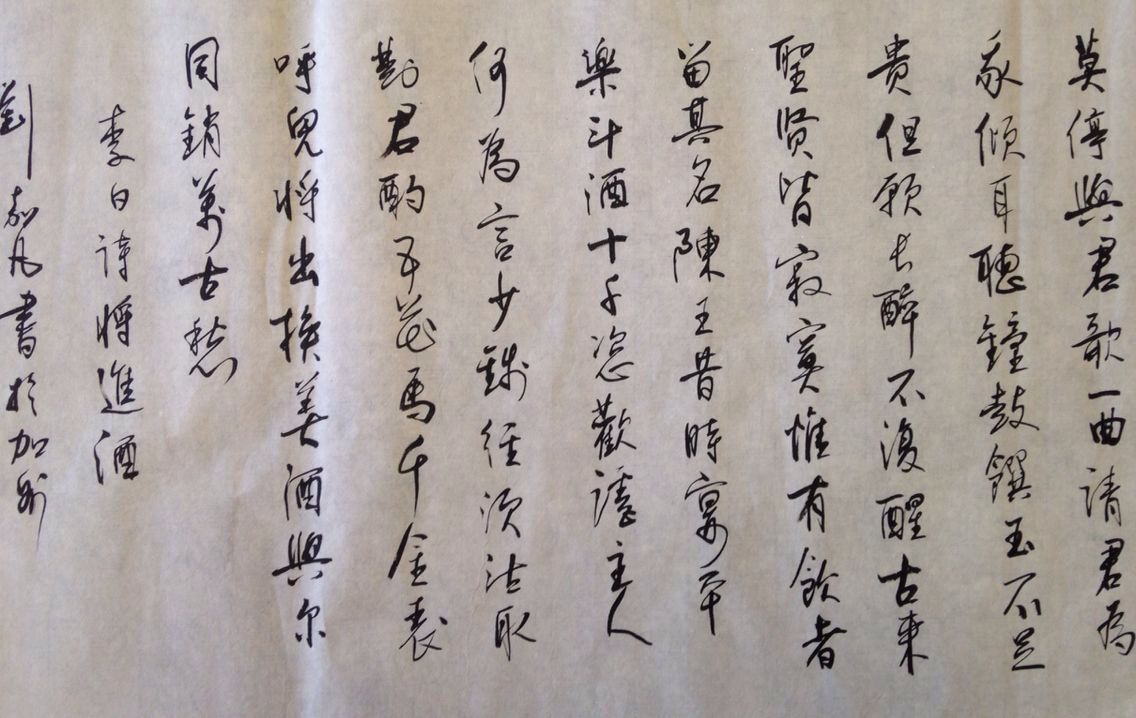 莫停與君歌一曲請君為
我傾耳聽鐘鼓饌玉不足
貴但願長醉不復醒古來
聖賢皆寂寞惟有飲者
留其名陳王昔時宴平
樂斗酒十千恣歡謔主人
何為言少錢徑須沽取
對君酌五花馬千金裘
呼兒將出換美酒與尔
同銷萬古愁
李白詩將進酒
劉嘉凡書於加州